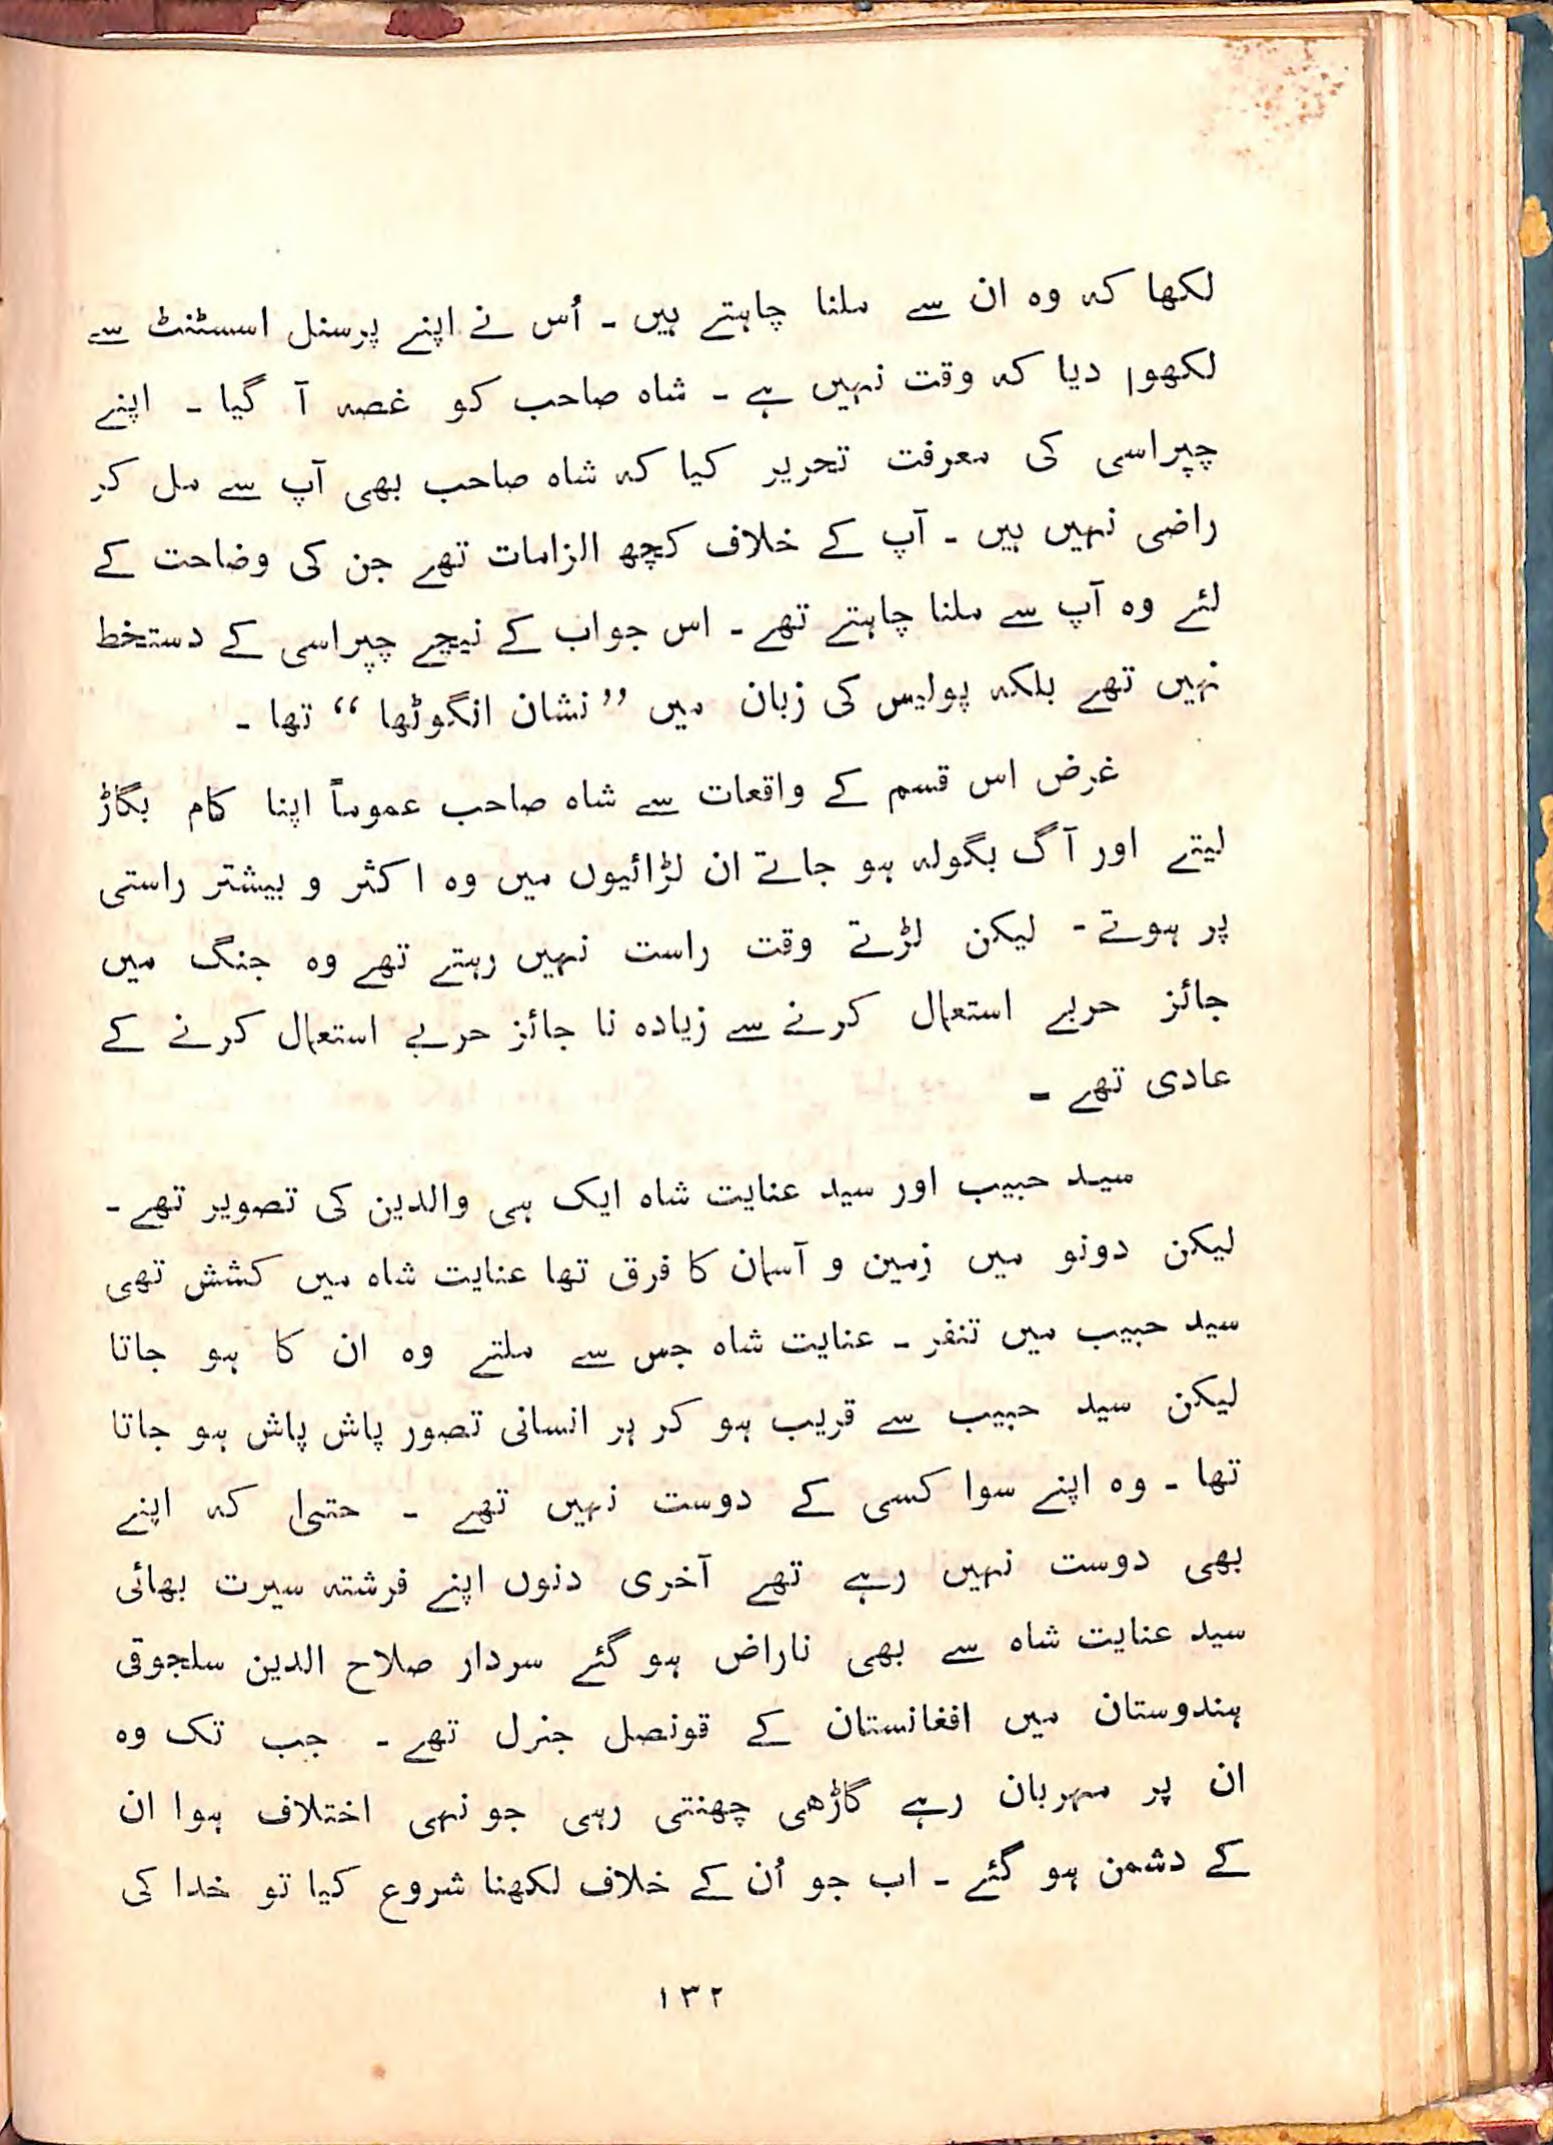 لکھا کہ وہ ان سے ملنا چاہتے ہیں ۔ اُس نے اپنے پرسنل اسسٹنٹ سے
لکھوا دیا کہ وقت نہیں ہے ۔ شاہ صاحب کو غصہ آ گیا ۔ اپنے
چپراسی کی معرفت تحریر کیا کہ شاہ صاحب بھی آپ سے مل کر
راضی نہیں ہیں ۔ آپ کے خلاف کچھ الزامات تھے جن کی وضاحت کے
لئے وہ آپ سے ملنا چاہتے تھے ۔ اس جواب کے نیچے چپراسی کے دستخط
نہیں تھے بلکہ پولیس کی زبان میں ”نشان انگوٹھا“ تھا ۔
غرض اس قسم کے واقعات سے شاہ صاحب عموماً اپنا کام بگاڑ
لیتے اور آگ بگولہ ہو جاتے ان لڑائیوں میں وہ اکثر و بیشتر راستی
پر ہوتے ۔ لیکن لڑتے وقت راست نہیں رہتے تھے وہ جنگ میں
جائز حربے استعمال کرنے سے زیادہ نا جائز حربے استعمال کرنے کے
عادی تھے ۔
سید حبیب اور سید عنایت شاہ ایک ہی والدین کی تصویر تھے ۔
لیکن دونو میں زمین و آسمان کا فرق تھا عنایت شاہ میں کشش تھی
سید حبیب میں تنفر ۔ عنایت شاہ جس سے ملتے وہ ان کا ہو جاتا
لیکن سید حبیب سے قریب ہو کر ہر انسانی تصور پاش پاش ہو جاتا
تھا ۔ وہ اپنے سوا کسی کے دوست نہیں تھے ۔ حتیٰ کہ اپنے
بھی دوست نہیں رہے تھے آخری دنوں اپنے فرشتہ سیرت بھائی
سید عنایت شاہ سے بھی ناراض ہو گئے سردار صلاح الدین سلجوقی
ہندوستان میں افغانستان کے قونصل جنرل تھے ۔ جب تک وہ
ان پر مہربان رہے گاڑھی چھنتی رہی جونہی اختلاف ہوا ان
کے دشمن ہو گئے ۔ اب جو اُن کے خلاف لکھنا شروع کیا تو خدا کی
۱۳۲